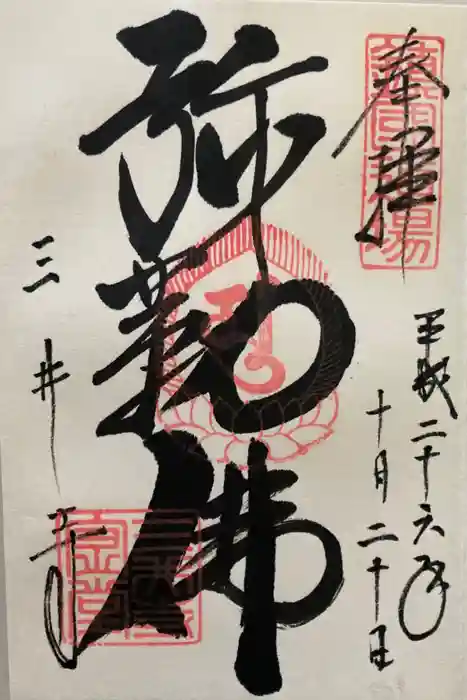 奉拝
平成二十六年
十月二十日
弥勒佛
三井寺